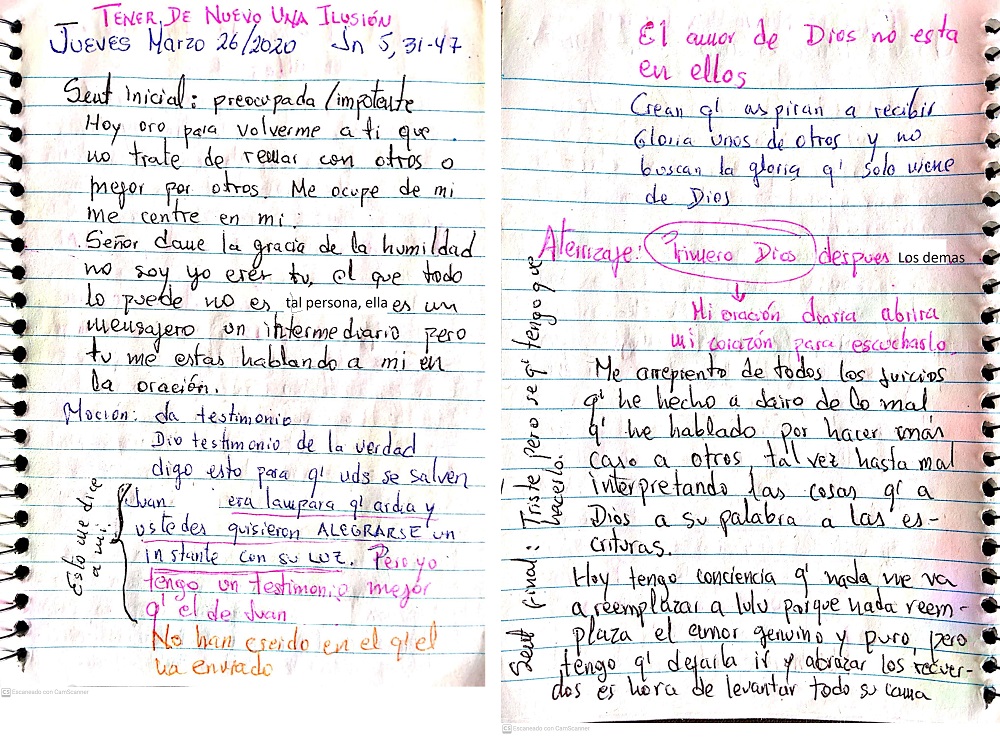 TENER DE NUEVO UNA ILUSIÓN
JUEVES Marzo 26/2020 Jn 5, 31-47
Sent inicial: preocupada/impotente
Hoy oro para volverme a ti que
no trate de remar con otros o
mejor por otros. Me ocupe de mi
me centre en mi.
Señor dame la gracia de la humildad
no soy yo eres tu, el que todo
lo puede no es, tal persona, ella es un
mensajero un intermediario pero
tu me estas hablando a mi en
la oración.
Moción: da testimonio
Dio testimonio de la verdad
digo esto para q' uds se salven
Juan era lampara q' ardia y
ustedes quisieron ALEGRARSE un
instante con su LUZ. Pero yo
tengo un testimonio mejor
q' el de Juan
Esto me dice
a mi.
No han creido en el q' el
ha enviado
CS Escaneado con CamScanner
El amor de Dios no esta
en ellos
Crean q' aspiran a recibir
Gloria unos de otros y no
buscan la gloria q' solo viene
de Dios
Aterrizaje: Primero Dios despues Los demas
Mi oración diaria abrira
mi corazón para escucharlo.
Me arrepiento de todos los juicios
q' he hecho a dairo de lo mal
q' he hablado por hacer más
caso a otros, tal vez hasta mal
interpretando las cosas q' a
Dios a su palabra a las es-
crituras.
Hoy tengo conciencia q' nada me va
a reemplazar a lulu porque nada reem-
plaza el amor genuino y puro, pero
tengo q' dejarla ir y abrazar los recuer-
dos es hora de levantar todo su cama
Sent final: Triste pero se q' tengo que
hacerlo.
CS Escaneado con CamScanner